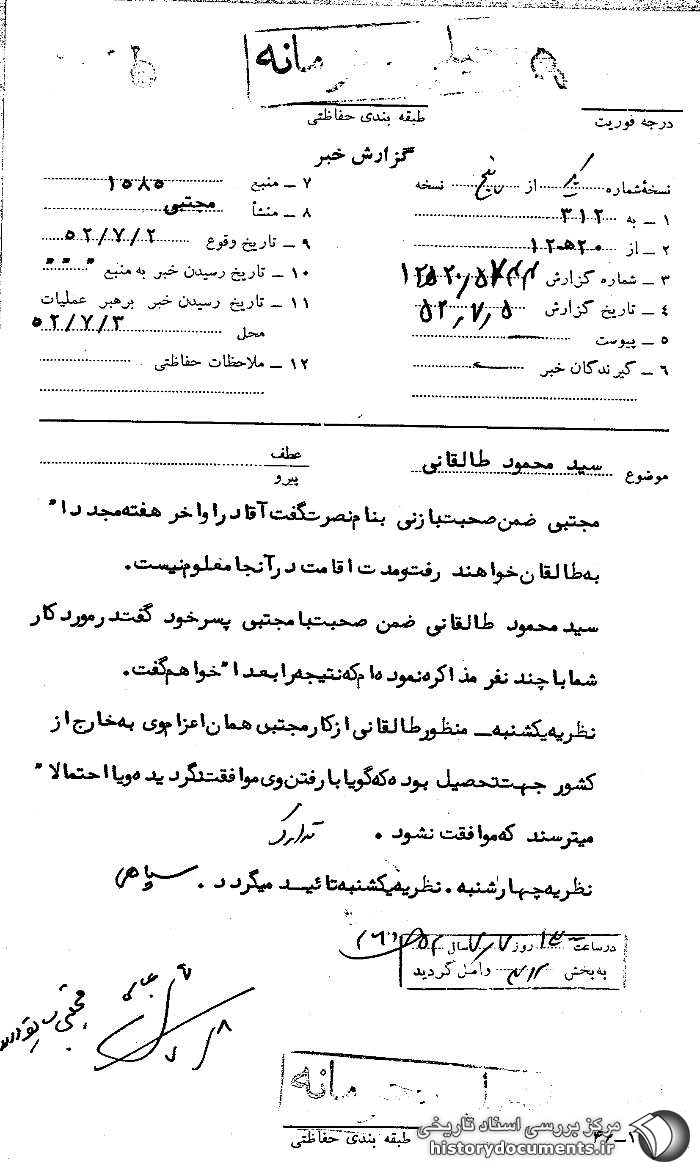 خیلی محرمانه
طبقه بندی حفاظتی
درجه فوریت
گزارش خبر
نسخهٔ شماره یک از پنج نسخه
۱ ــ به ۳۱۲
۲ ــ از ۱۲۰۵۲۰
۳ ــ شماره گزارش
۴ ــ تاریخ گزارش ۵۲٫۷٫۵
۵ ــ پیوست
۶ ــ گیرندگان خبر
۷ ــ منبع ۱۵۸۵
۸ ــ منشأ مجتبی
۹ ــ تاریخ وقوع ۵۲/۷/۲
۱۰ ــ تاریخ رسیدن خبر به منبع
۱۱ ــ تاریخ رسیدن خبر برهبر عملیات
محل ۵۲/۷/۳
۱۲ ــ ملاحظات حفاظتی
موضوع سید محمود طالقانی
عطف
پیرو
مجتبی ضمن صحبت بازنی بنام نصرت گفت آقا در اواخر هفته مجددا"
به طالقان خواهند رفت و مدت اقامت در آنجا معلوم نیست.
سید محمود طالقانی ضمن صحبت با مجتبی پسر خود گفت در مورد کار
شما با چند نفر مذاکره نموده ام که نتیجه را بعدا" خواهم گفت.
نظریه یکشنبه ــ منظور طالقانی از کار مجتبی همان اعزام وی به خارج از
کشور جهت تحصیل بوده که گویا با رفتن وی موافقت نگردیده و یا احتمالا"
میترسند که موافقت نشود. تدارک
نظریه چهارشنبه. نظریه یکشنبه تائید میگردد. سپاهی
در ساعت ۱۳ روز ۷/۷ سال ۵۲
به بخش ۳۱۲ واصل گردید
محرمانه
طبقه بندی حفاظتی
مرکز بررسی اسناد تاریخی
historydocuments.ir